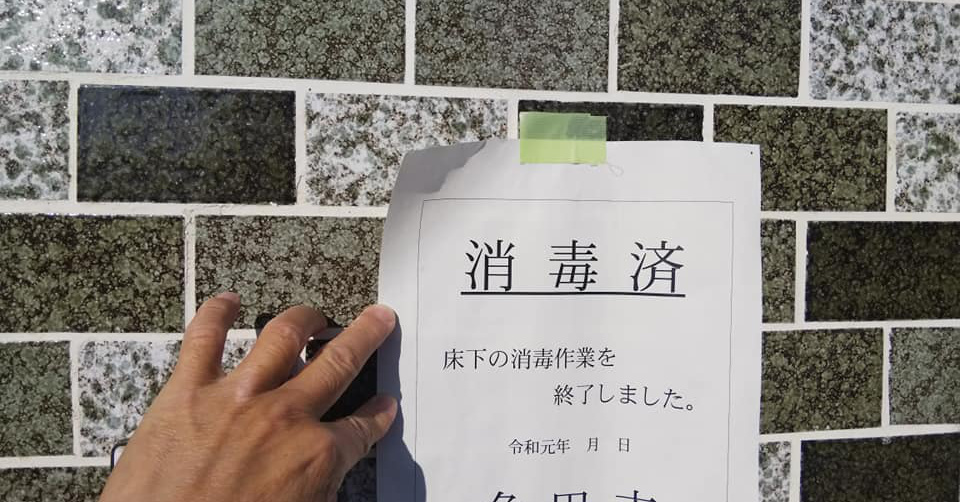 消毒済
床下の消毒作業を
終了しました。
令和元年 月 日